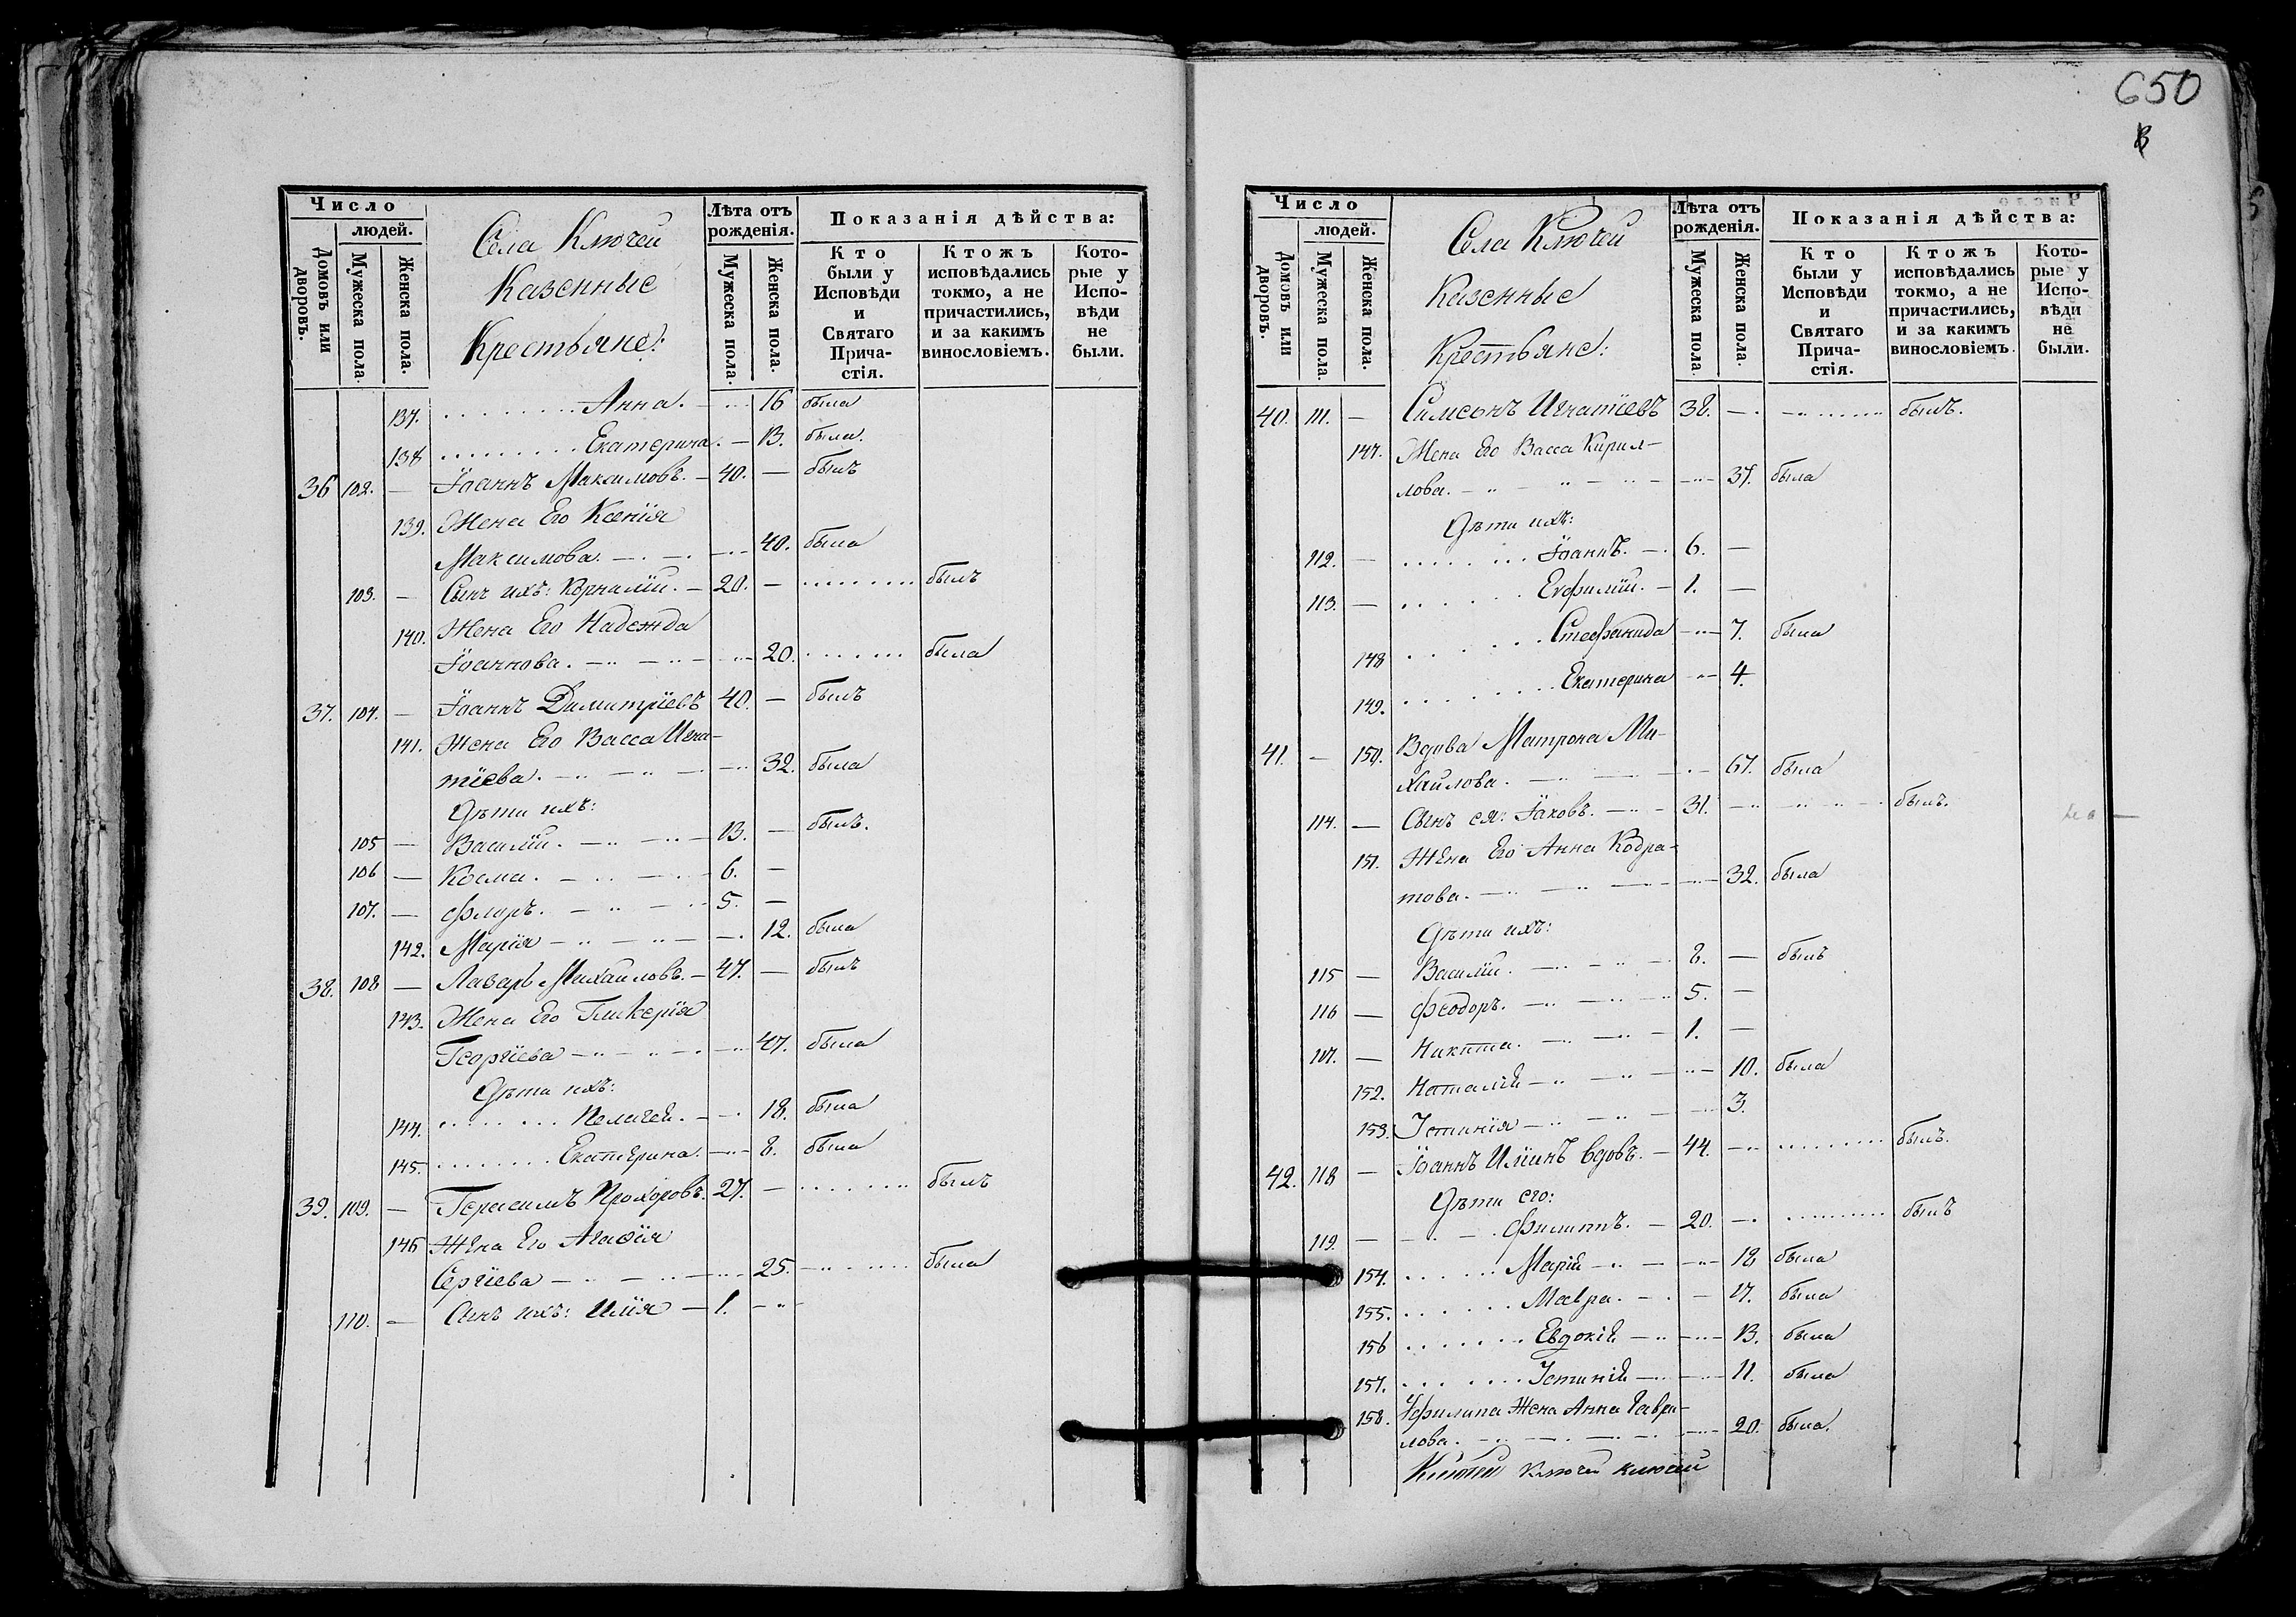 Число
людей.
Домовъ или дворовъ.
Мужеска пола.
Женска пола.
Села Ключей
Казенные
Крестьяне:
Лѣта отъ рожденія.
Мужеска пола.
Женска пола.
Показанія дѣйства:
Кто были у Исповѣди и Святаго Прича-стія.
Ктожъ исповѣдались токмо, а не причастились, и за какимъ винословіемъ.
Кото-рые у Испо-вѣди не были.
137. Анна. 16 была
138 Екатерина. 13. была.
36 102. Іоаннъ Максимовъ. 40. былъ
139. Жена Его Ксенія
Максимова. 40. была
103. Сынъ ихъ: Корнилій. 20. былъ
140. Жена Его Надежда
Іоаннова. 20. была
37. 104. Іоаннъ Димитріевъ 40. былъ
141. Жена Его Васса Игна-
тіева. 32. была
Дѣти ихъ:
105 Василій. 13. былъ.
106 Косма. 6.
107. Флоръ. 5.
142. Марія 12. была
38. 108 Лазарь Михаиловъ. 47. былъ
143. Жена Его Гликерія
Георгіева 47. была
Дѣти ихъ:
144. Пелагей. 18. была
145. Екатерина. 8. была
39. 109. Герасимъ Прохоровъ. 27. былъ
146 Жена Его Агафія
Сергіева 25. была
110. Сынъ ихъ: Илія 1.
650
Число
людей.
Домовъ или дворовъ.
Мужеска пола.
Женска пола.
Села Ключей
Казенные
Крестьяне:
Лѣта отъ рожденія.
Мужеска пола.
Женска пола.
Показанія дѣйства:
Кто были у Исповѣди и Святаго Прича-стія.
Ктожъ исповѣдались токмо, а не причастились, и за какимъ винословіемъ.
Кото-рые у Испо-вѣди не были.
40. 111. Симеонъ Игнатіевъ 38. былъ.
147. Жена Его Васса Кирил-
лова. 37. была
Дѣти ихъ:
112. Іоаннъ. 6.
113. Евфимій. 1.
148 Стефанида 7. была
149. Екатерина 4.
41. 150. Вдова Матрона Ми-
хаилова. 67. была
114. Сынъ ея: Іаковъ. 31. былъ.
151. Жена Его Анна Кодра-
това. 32. была
Дѣти ихъ:
115 Василій. 8. былъ
116 Феодоръ. 5.
117. Никита. 1.
152. Наталій 10. была
153. Устинія 3.
42. 118 Іоаннъ Иліинъ вдовъ. 44. былъ.
Дѣти его:
119. Филиппъ. 20. былъ
154. Марій 18 была
155. Мавра. 17. была
156 Евдокій 13. была
157. Устиній 11. была
158. У Филипа Жена Анна Гаври-
лова. 20. была.
Ключей Ключей ключей